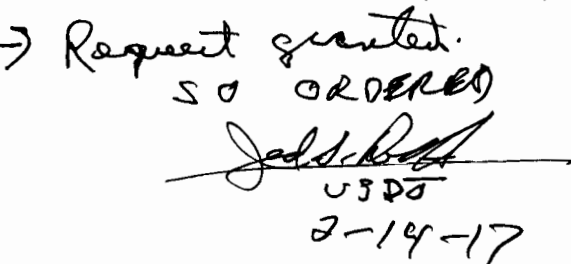 → Request granted.
SO ORDERED
Jed S. Rakoff
USDJ
2-14-17